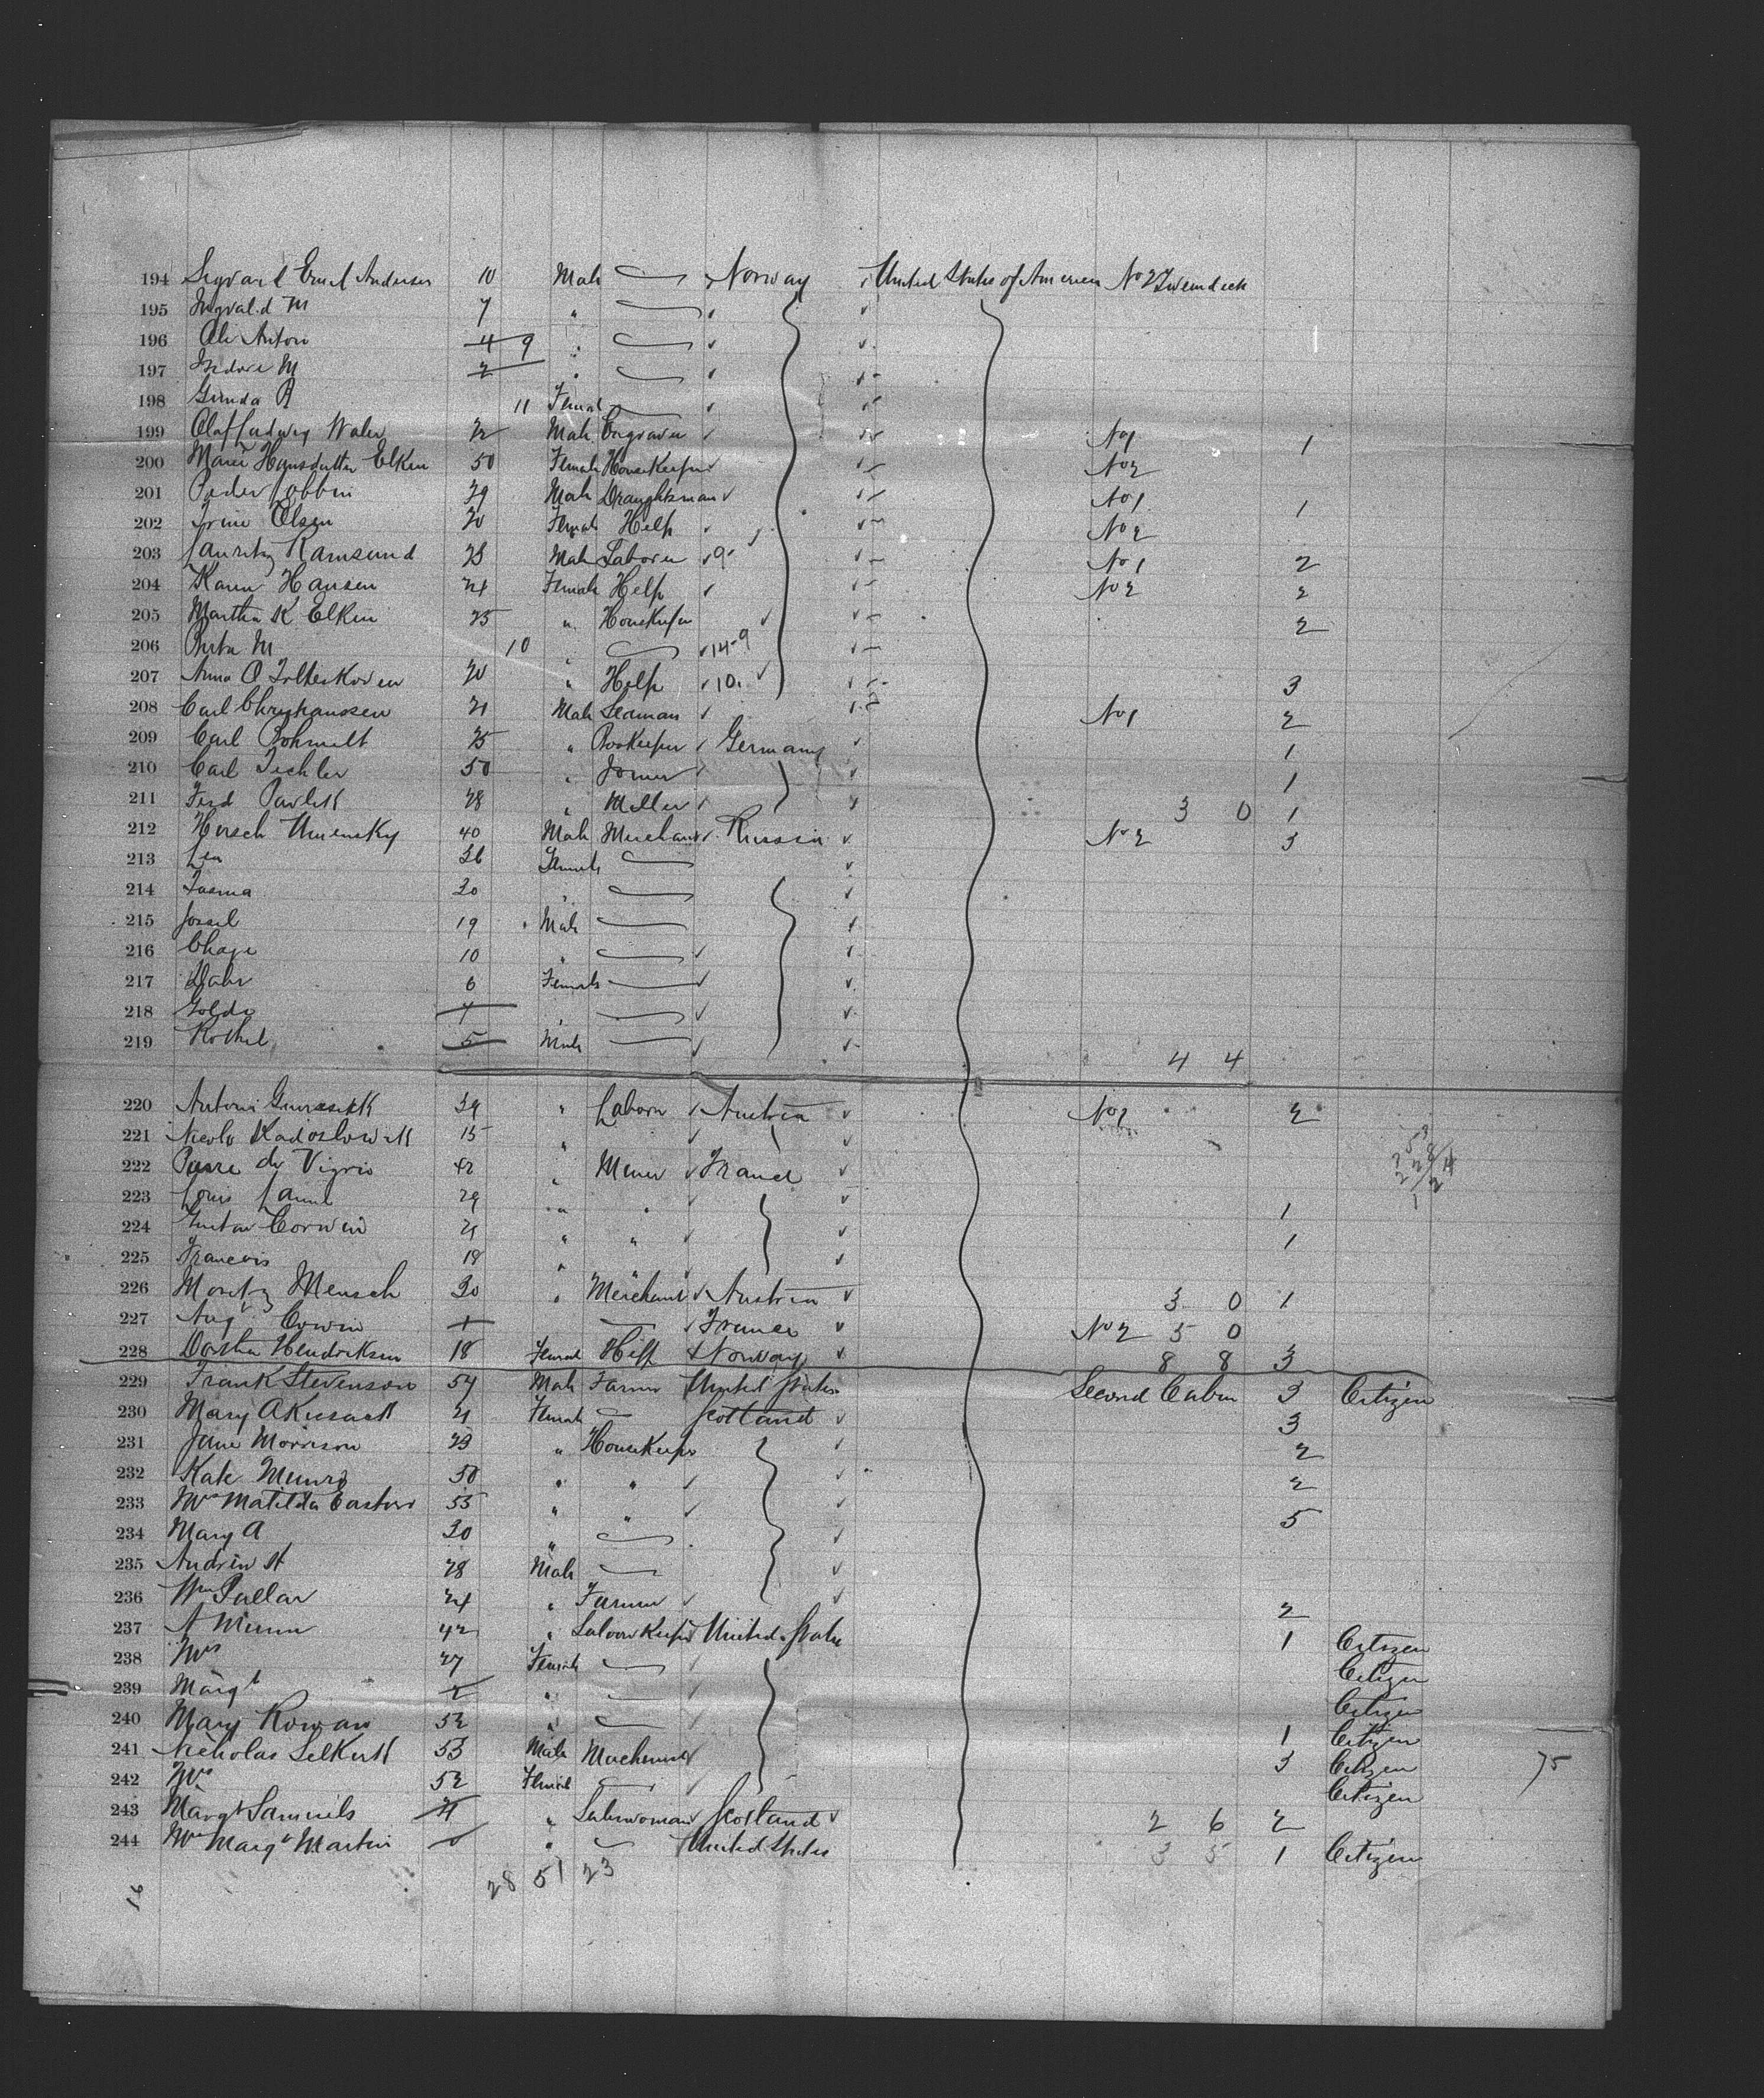 194 Sigvard Ernst Andersen 10 Male Norway United States of America No 2 Tweendeck
195 Ingvald M 7 "
196 Ole Anton 4 9 "
197 Isidore M 2 "
198 Gunda 11 Female
199 Olaf Ludwig Waler 22 Male Engraver No 1 1
200 Marie Hansdatter Elken 50 Female Housekeeper No 2
201 Peder 29 Male Draughtsman No 1 1
202 Trine Olsen 20 Female Help No 2
203 Lauritz Ramsund 23 Male Laborer 9 No 1 2
204 Karen Hansen 24 Female Help No 2 2
205 Martha K Elken 25 " Housekeeper 2
206 M 10 " 14-9
207 Anna O 20 " Help 10 3
208 Carl Chryshanssen 21 Male Seaman No 1 2
209 Carl 25 " Bookeeper Germany 1
210 Carl Techler 50 " Joiner 1
211 Ferd Pavlek 28 " Miller 3 0 1
212 Hersch Umensky 40 Male Merchant Russia No 2 3
213 Lea 36 Female
214 30 "
215 Jossel 19 Male
216 Chaje 10 "
217 6 Female
218 Golde 1 "
219 Rochel 5 Male
4 4
220 Antoni 39 " Laborer Austria No 1 2
221 Nicolo 15 "
222 Pierre de Vigrio 42 " Miner France
223 Louis 29 " " 1
224 Gustav Corwin 21 " " 1
225 Francois 18 "
226 Moritz Mensch 30 " Merchant Austria 3 0 1
227 Aug Corwin 1 France No 2 5 0
228 Dortha Hendricksen 18 Female Help Norway 8 8 3
229 Frank Stevenson 54 Male Farmer United States Second Cabin 3 Citizen
230 Mary A Kusack 21 Female Scotland 3
231 Jane Morrison 23 " Housekeeper 2
232 Kate Munro 50 " " 2
233 Mrs Matilda Easton 55 " " 5
234 Mary A 30 "
235 Andrew H 28 Male
236 Wm Pullar 24 " Farmer 2
237 A Minn 42 " Saloonkeeper United States 1 Citizen
238 Mrs 27 Female Citizen
239 Margt 2 " Citizen
240 Mary Rowan 52 " 1 Citizen
241 Nicholas Selkirk 53 Male Machinist 3 Citizen 75
242 Mrs 52 Female Citizen
243 Margt Samuels 21 " Saleswoman Scotland 2 6 2
244 Mrs Margt Martin " United States 3 5 1 Citizen
28 51 23
16